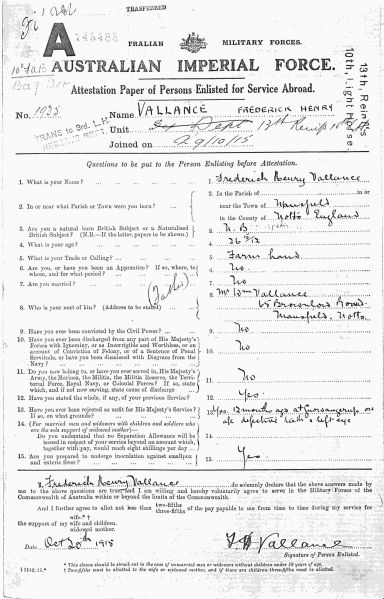 TRANSFERRED
A
TRALIAN MILITARY FORCES.
AUSTRALIAN IMPERIAL FORCE.
Attestation Paper of Persons Enlisted for Service Abroad.
13th, Reinfts
10th, Light Horse.
No. 1935 Name VALLANCE FREDERICK HENRY
TRANS to 3rd. L.H. Unit Dept 13th Reinfts
Joined on 29/10/15
Questions to be put to the Person Enlisting before Attestation.
1. What is your Name? 1. Frederick Henry Vallance
2. In or near what Parish or Town were you born? 2. In the Parish of
near the Town of Mansfield
in the County of Notts England
3. Are you a natural born British Subject or a Naturalised British Subject? (N.B.—If the latter, papers to be shown.) 3. N.B
4. What is your age? 4. 26
5. What is your Trade or Calling? 5. Farm hand
6. Are you, or have you been an Apprentice? If so, where, to whom, and for what period? 6. No
7. Are you married? 7. No
8. Who is your next of kin? (Address to be stated) (Father) 8. Mr Wm Vallance
65 Brownlow Road
Mansfield, Notts
9. Have you ever been convicted by the Civil Power? 9. No
10. Have you ever been discharged from any part of His Majesty's Forces with Ignominy, or as Incorrigible and Worthless, or on account of Conviction of Felony, or of a Sentence of Penal Servitude, or have you been dismissed with Disgrace from the Navy? 10. No
11. Do you now belong to, or have you ever served in, His Majesty's Army, the Marines, the Militia, the Militia Reserve, the Territorial Force, Royal Navy, or Colonial Forces? If so, state which, and if not now serving, state cause of discharge 11. No
12. Have you stated the whole, if any, of your previous Service? 12. Yes
13. Have you ever been rejected as unfit for His Majesty's Service? If so, on what grounds? 13. Yes. 12 months ago at
defective left eye
14. (For married men and widowers with children and soldiers who are the sole support of widowed mother)—
Do you understand that no Separation Allowance will be issued in respect of your service beyond an amount which, together with pay, would reach eight shillings per day? 14.
15. Are you prepared to undergo inoculation against smallpox and enteric fever? 15. Yes
I, Frederick Henry Vallance do solemnly declare that the above answers made by
me to the above questions are true, and I am willing and hereby voluntarily agree to serve in the Military Forces of the
Commonwealth of Australia within or beyond the limits of the Commonwealth.
And I further agree to allot not less than two-fifths three-fifths of the pay payable to me from time to time during my service for
the support of my wife* † wife and children. widowed mother.
Date Oct 20th 1915 F H Vallance
Signature of Person Enlisted.
* This clause should be struck out in the case of unmarried men or widowers without children under 18 years of age.
† Two-fifths must be allotted to the wife or widowed mother, and if there are children three-fifths must be allotted.